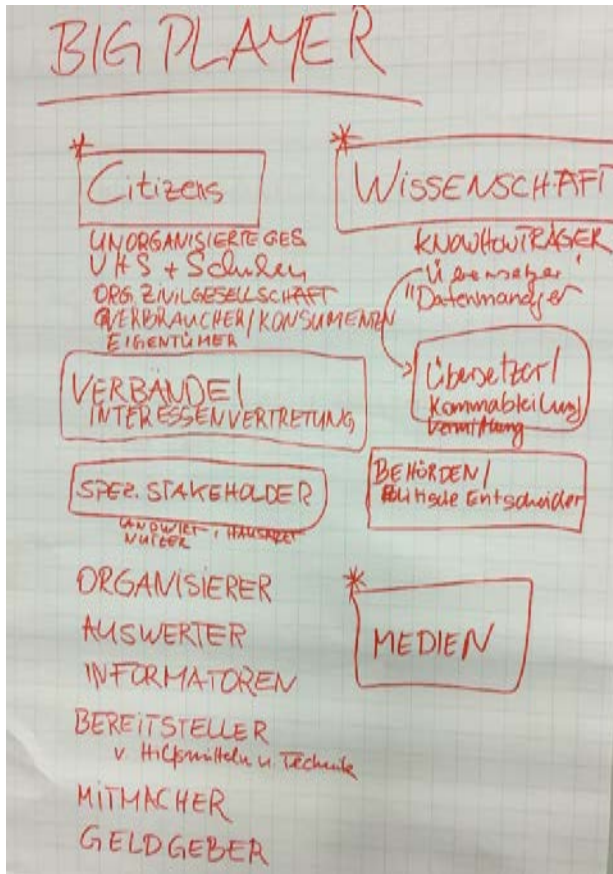 BIG PLAYER
* Citizens
UNORGANISIERTE GES.
VHS + Schulen
ORG. ZIVILGESELLSCHAFT
VERBRAUCHER/KONSUMENTEN
EIGENTÜMER
VERBÄNDE/
INTERESSENVERTRETUNG
SPEZ. STAKEHOLDER
LANDWIRT, HAUSARZT
NUTZER
ORGANISIERER
AUSWERTER
INFORMATOREN
BEREITSTELLER
v. Hilfsmitteln u. Technik
MITMACHER
GELDGEBER
* WISSENSCHAFT
KNOWHOWTRÄGER
Übersetzer
"Datenmanager
Übersetzer/
Kommabteilung/
Vermittlung
BEHÖRDEN/
Politische Entscheider
* MEDIEN